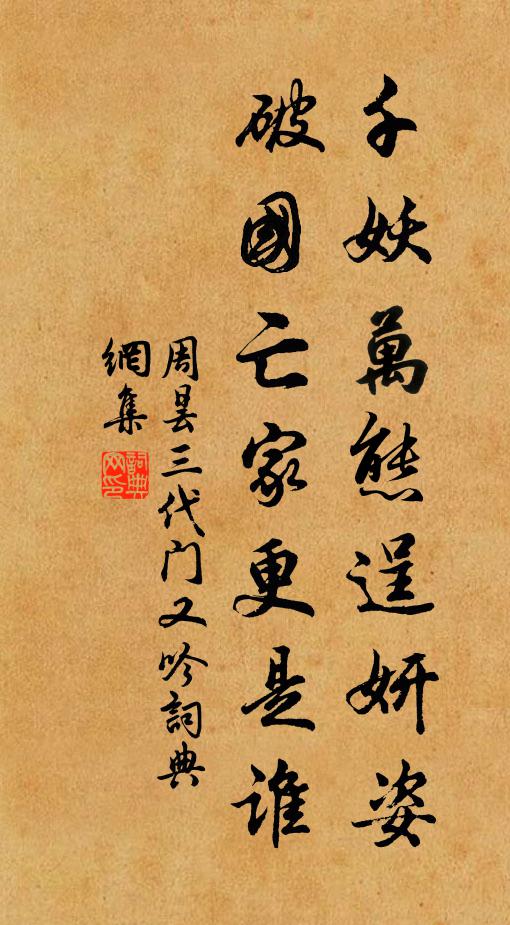 千妖萬態逞妍姿
破國亡家更是誰
周曇三代门又吟詞典
網集
詞典網印